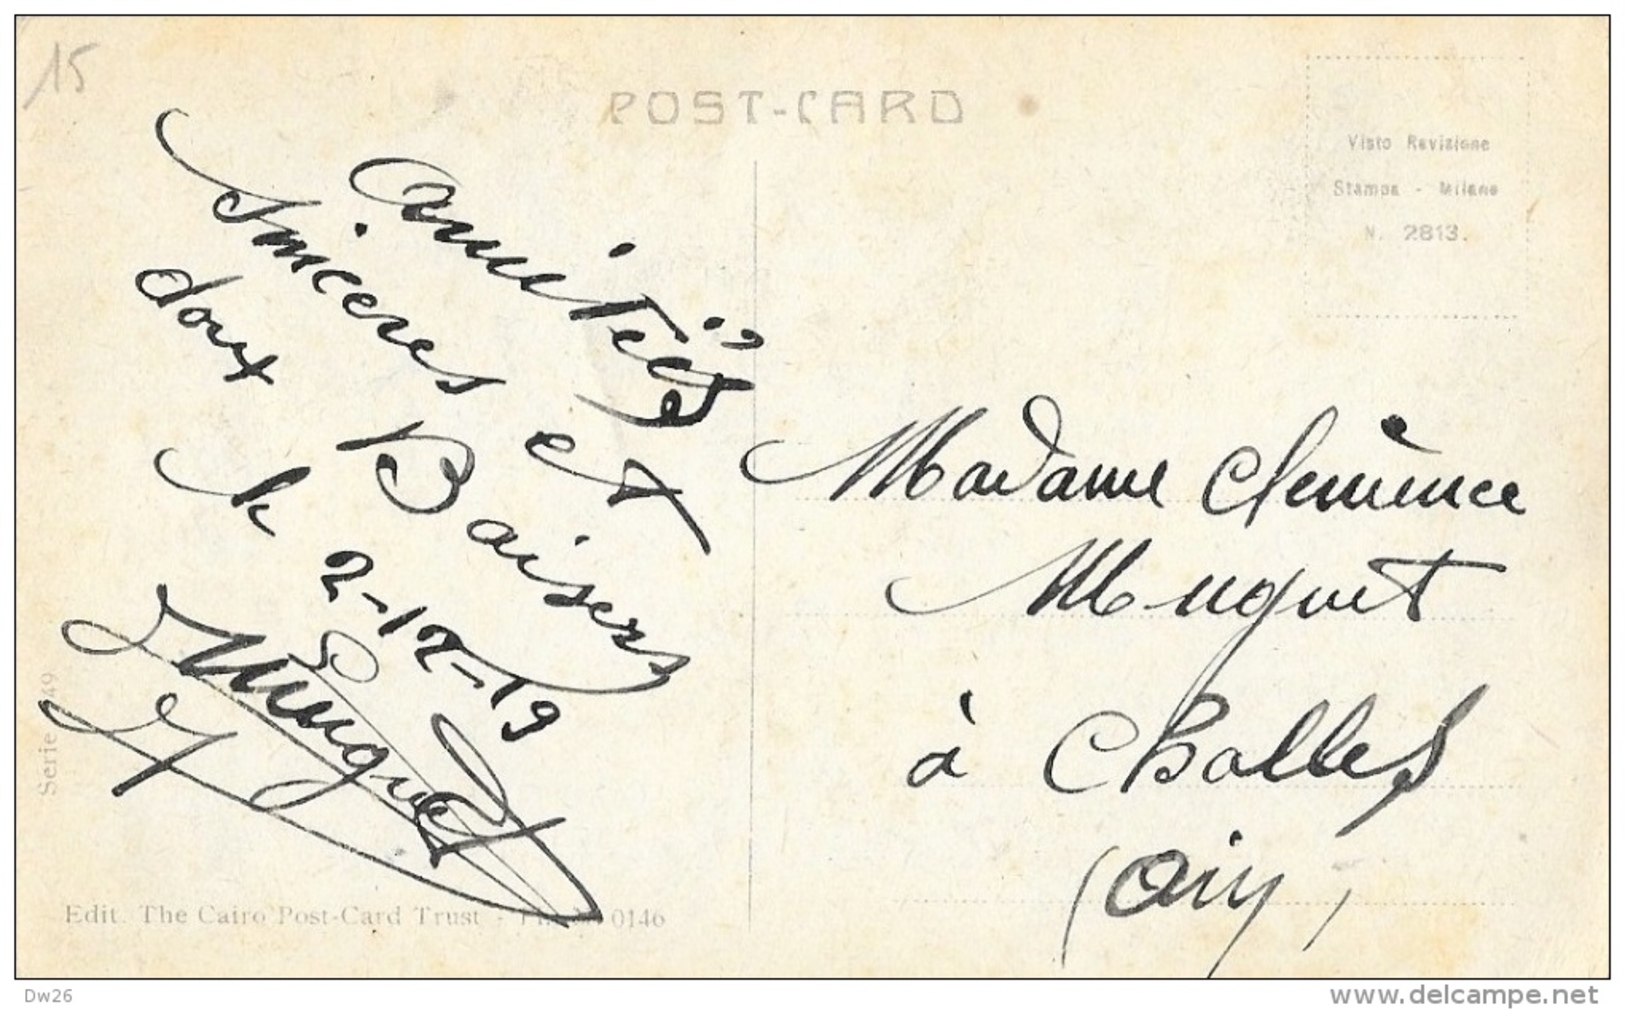 15
POST-CARD
Visto Revisione
Stampa - Milano
N. 2813.
Amitiés
sincères et
doux Baisers
le 2-12-19
Muguet
Madame Clémence
Muguet
à Challes
(Ain)
Serie 49
Edit. The Cairo Post-Card Trust - 0146
Dw26
www.delcampe.net